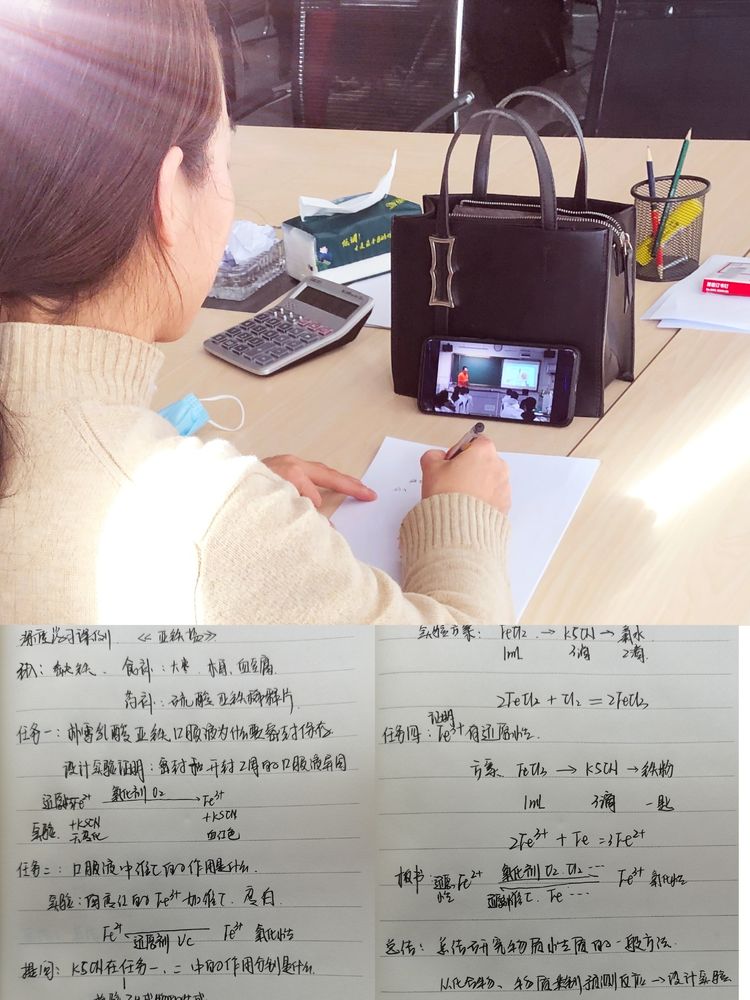 深度学习课例 《亚铁盐》
引入：缺铁、食补：大枣、木耳、血豆腐.
药补：硫酸亚铁缓释片
任务一：补葡乳酸亚铁口服液为什么要密封保存
设计实验证明：密封和开封2周的口服液异同
还原性Fe²⁺ 氧化剂 O₂ → Fe³⁺
实验 +KSCN +KSCN
无变化 血红色
任务二：口服液中维C的作用是什么.
实验：开封2周的Fe³⁺加维C. 变白
Fe²⁺ ← 还原剂 VC Fe³⁺ 氧化性
提问：KSCN在任务一、二中的作用分别是什么.
实验方案：FeCl₂ → KSCN → 氯水
1mL 3滴 2滴
2FeCl₂ + Cl₂ = 2FeCl₃
任务四：证明Fe³⁺有还原性.
方案 FeCl₃ → KSCN → 铁粉
1mL 3滴 一匙
2Fe³⁺ + Fe = 3Fe²⁺
板书：还原性 Fe²⁺ 氧化剂 O₂ Cl₂ ⋯ Fe³⁺ 氧化性
还原剂维C、Fe ⋯
总结：总结研究物质性质的一般方法.
从化合价、物质类别预测反应 → 设计实验